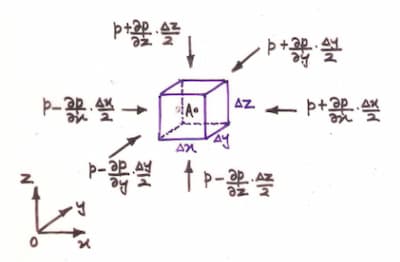 p+∂p/∂z·Δz/2
p+∂p/∂y·Δy/2
p-∂p/∂x·Δx/2
A
Δz
p+∂p/∂x·Δx/2
Δx
Δy
p-∂p/∂y·Δy/2
p-∂p/∂z·Δz/2
z
y
O
x